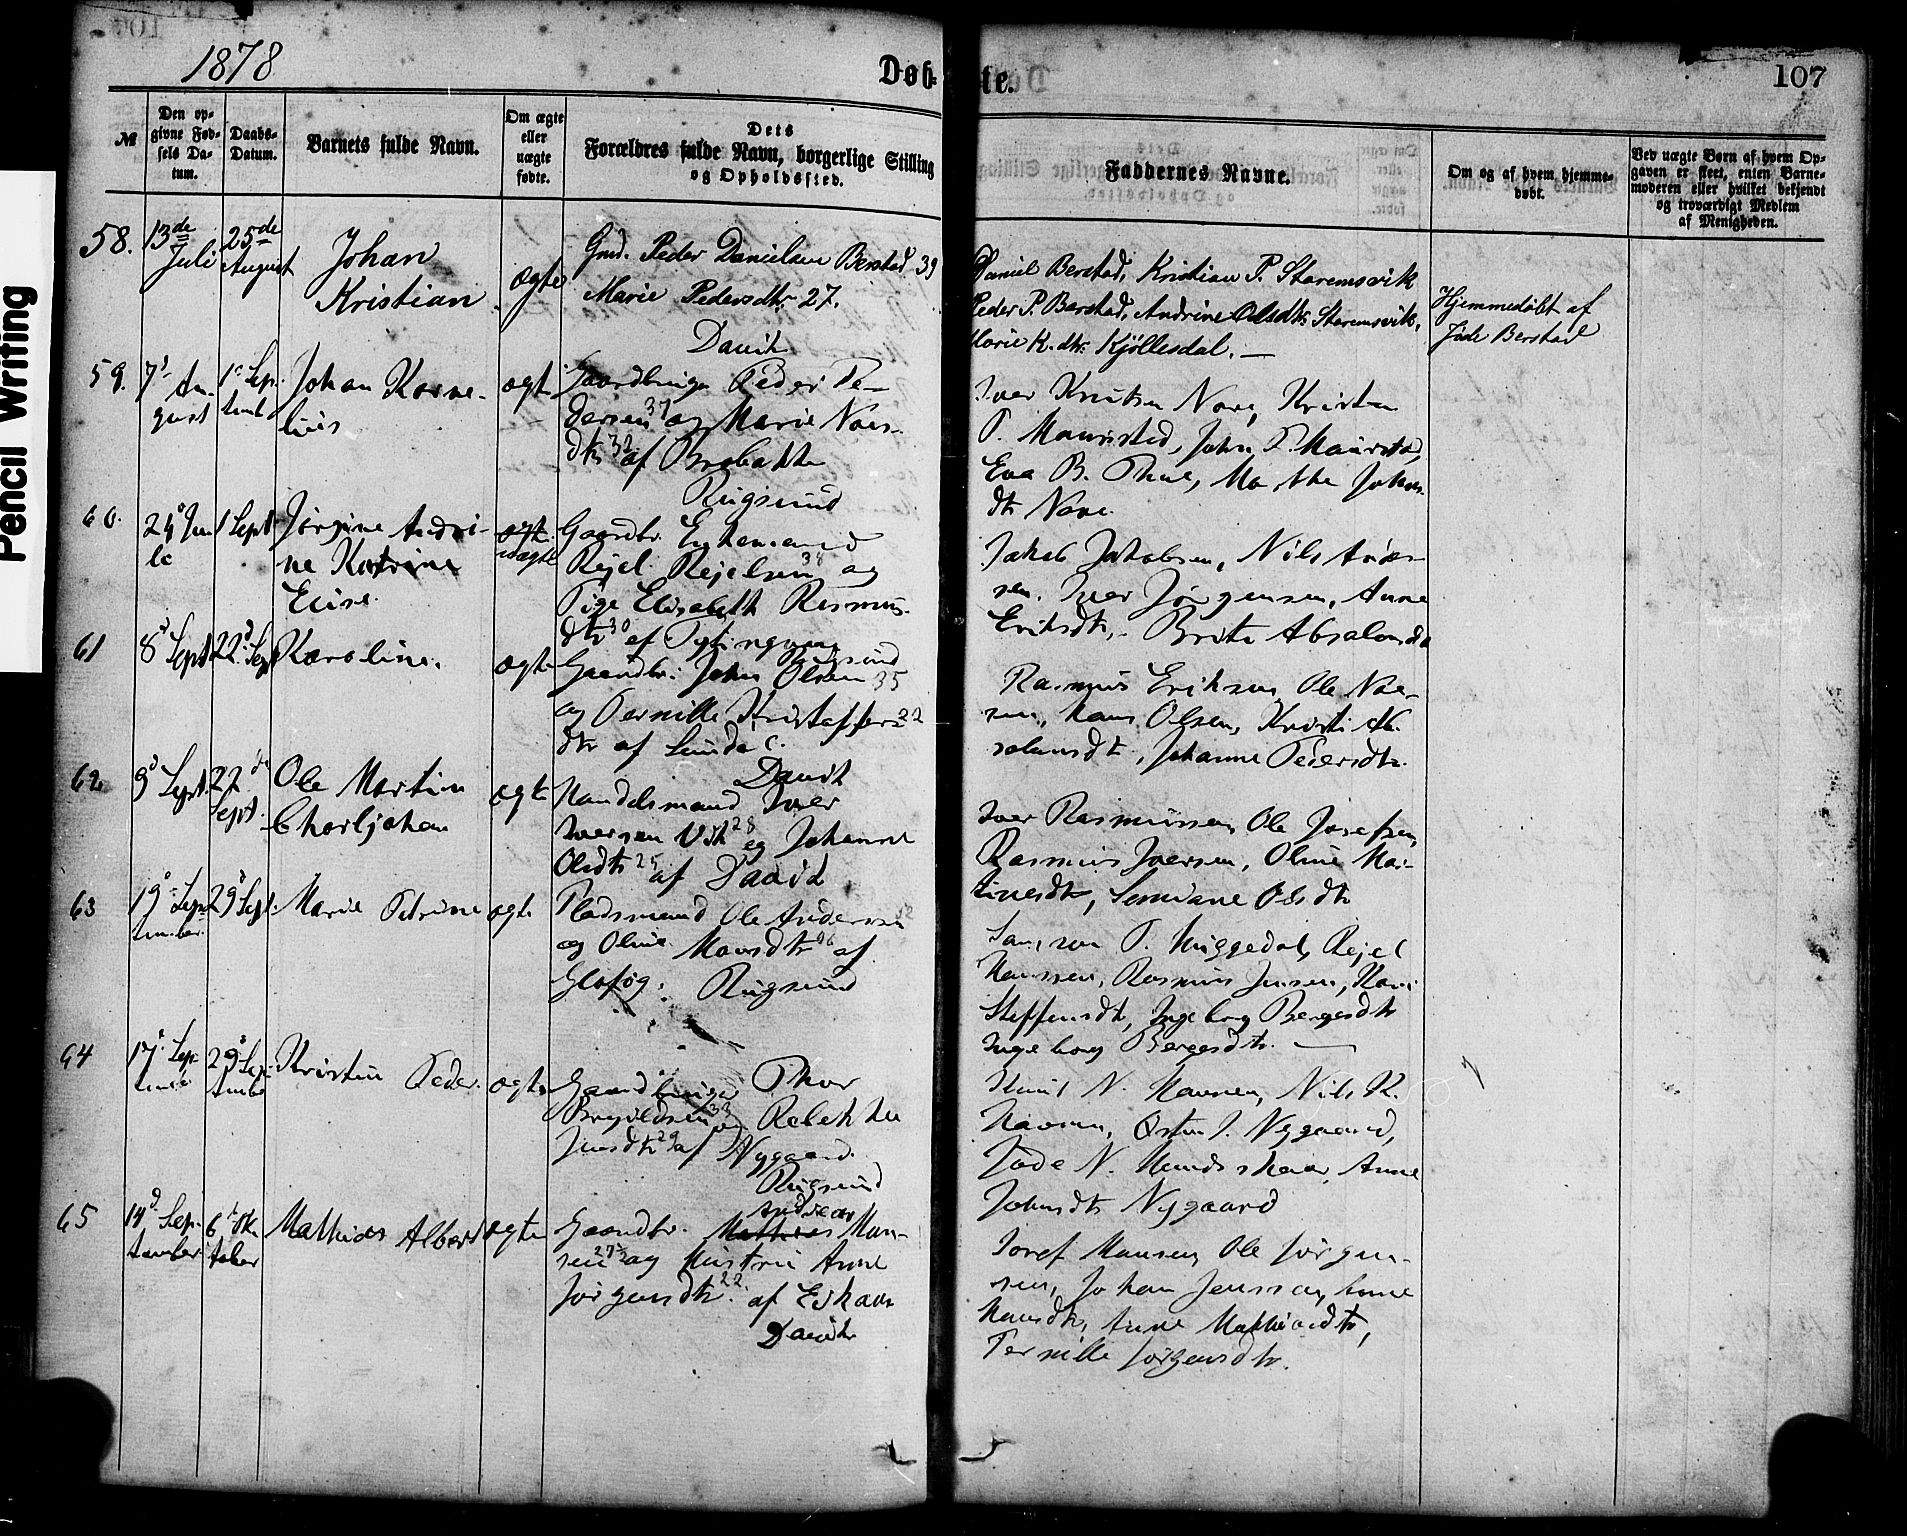 1878
Døb-
te.
107
Pencil Writing
№
Den op-
givne Fød-
sels Da-
tum.
Daabs-
Datum.
Barnets fulde Navn.
Om ægte
eller
uægte
fødte.
Dets
Forældres fulde Navn, borgerlige Stilling
og Opholdssted.
Faddernes Navne.
Om og af hvem hjemme-
døbt.
Ved uægte Børn af hvem Op-
gaven er skeet, enten Barne-
moderen eller hvilket bekjendt
og troværdigt Medlem
af Menigheden.
58.
13de
Juli
25de
August
Johan
Kristian
ægte
Gmd. Peder Danielsen Berstad 39
Marie Pedersdtr 27.
Davik
Daniel Berstad, Kristian P. Staremsvik
Peder P. Berstad, Andrine Olsdtr Staremsvik,
Marie K. dtr Kjøllesdal. —
Hjemmedøbt af
Jøde Berstad
59.
7d Au-
gust
1e Sep-
temb
Johan Korne-
lius
ægte
Gaardbruger Peder Pe-
dersen 37 og Marie Nors-
dtr 32 af
Rugsund
Iver Knutsen Nore, Kristen
P. Maurstad, John P. Maurstad,
Eva B. Thue, Marthe Johns-
dtr Nore.
60.
24d Ju-
li
1 Sept.
Jørgine Andri-
ne Katrine
Elise.
ægte
uægte
Gaardbr. Enkemand
Rejel Rejelsen 38 og
Pige Elisabeth Rasmus-
dtr 30 af
Rugsund
Jakob Jakobsen, Nils Andre-
sen, Iver Jørgensen, Anne
Eriksdtr, Brite Absalonsdtr
61
8d Sept
22d Sept
Karoline.
ægte
Gaardbr. John Olsen 35
og Pernille Kristoffers 22
dtr af Lunde.
Davik
Rasmus Eriksen, Ole Nor-
sen, Hans Olsen, Kristi Ab-
salonsdtr, Johanne Pedersdtr.
62
9d Sept.
22de
Sept.
Ole Martin
Charljohan
ægte
Handelsmand Iver
Iversen Vik 28 og Johanne
Olsdtr 25 af Davik
Iver Rasmussen, Ole Josefsen,
Rasmus Iversen, Oline Mar-
tinesdtr, Olsdtr
63
19d Sep-
tember
29d Sept.
Marie Petrine
ægte
Pladsmand Ole Andersen
og Oline Monsdtr 46 af
Rugsund
Samson P. Huggedal, Rejel
Hanssen, Rasmus Jensen, Kari
Steffensdtr, Ingeborg Bergesdtr
Ingeborg Bergesdtr. —
64
17d Sep-
tember
29d Sep-
tember
Kristen Peder.
ægte
Gaardbruger Thor
Brynildsen 33 og Rebekka
Jensdtr 29 af Nygaard.
Rugsund
Knut N. Havnen, Nils K.
Havnen, Østen J. Nygaard,
Jøde N. Hundskaar, Anne
Johnsdtr Nygaard
65
14d Sep-
tember
6te Ok-
tober
Mathias Albert
ægte
Andreas
Gaardbr. Mathias Mon-
sen 27½ og Hustru Anne
Jørgensdtr 22. af Eskaar
Davik
Josef Monsen, Ole Jørgen-
sen, Johan Jensson, Anne
Monsdtr, Anne Mathiasdtr,
Pernille Jørgensdtr.